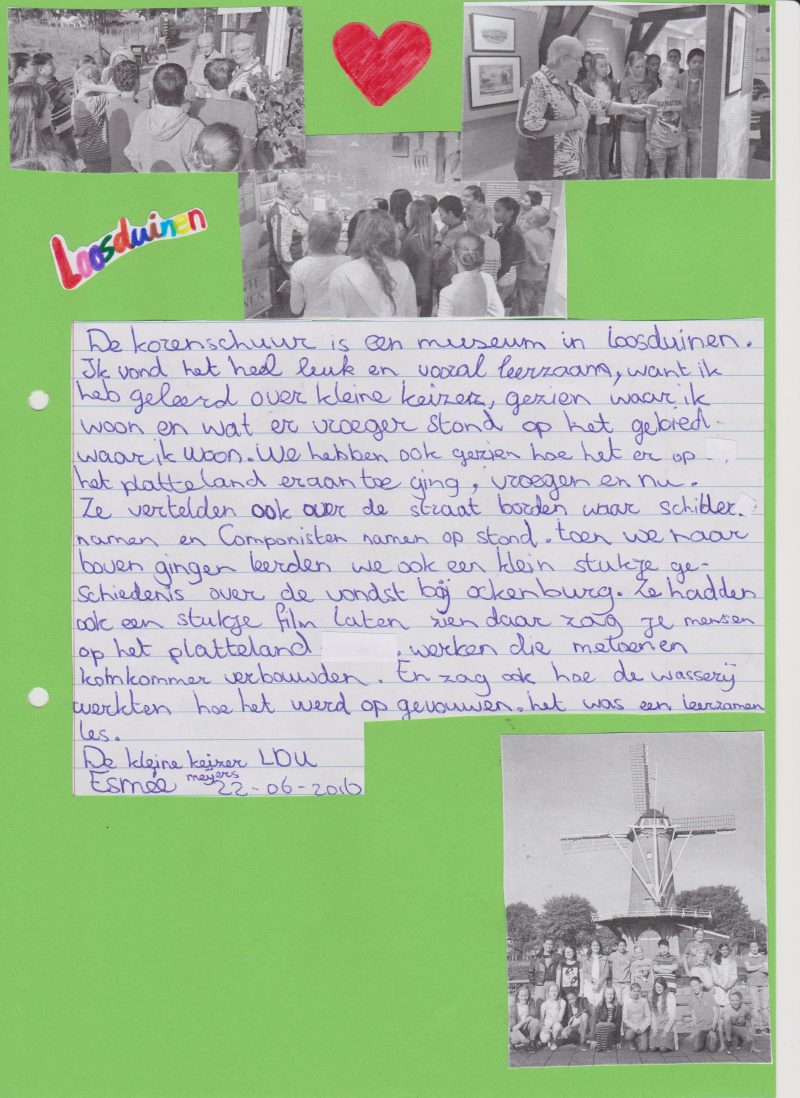 Loosduinen
De korenschuur is een museum in loosduinen.
Ik vond het heel leuk en vooral leerzaam, want ik
heb geleerd over kleine keizer, gezien waar ik
woon en wat er vroeger stond op het gebied
waar ik woon. We hebben ook gezien hoe het er op
het platteland eraan toe ging, vroegen en nu.
Ze vertelden ook over de straat borden waar schilder.
namen en Componisten namen op stond. toen we naar
boven gingen leerden we ook een klein stukje ge-
schiedenis over de vondst bij ockenburg. Ze hadden
ook een stukje film laten zien daar zag je mensen
op het platteland . werken die meloen en
komkommer verbouwden. En zag ook hoe de wasserij
werkten hoe het werd op gevouwen. het was een leerzamen
les.
De kleine keizer LDU
Esmée meijers 22-06-2016